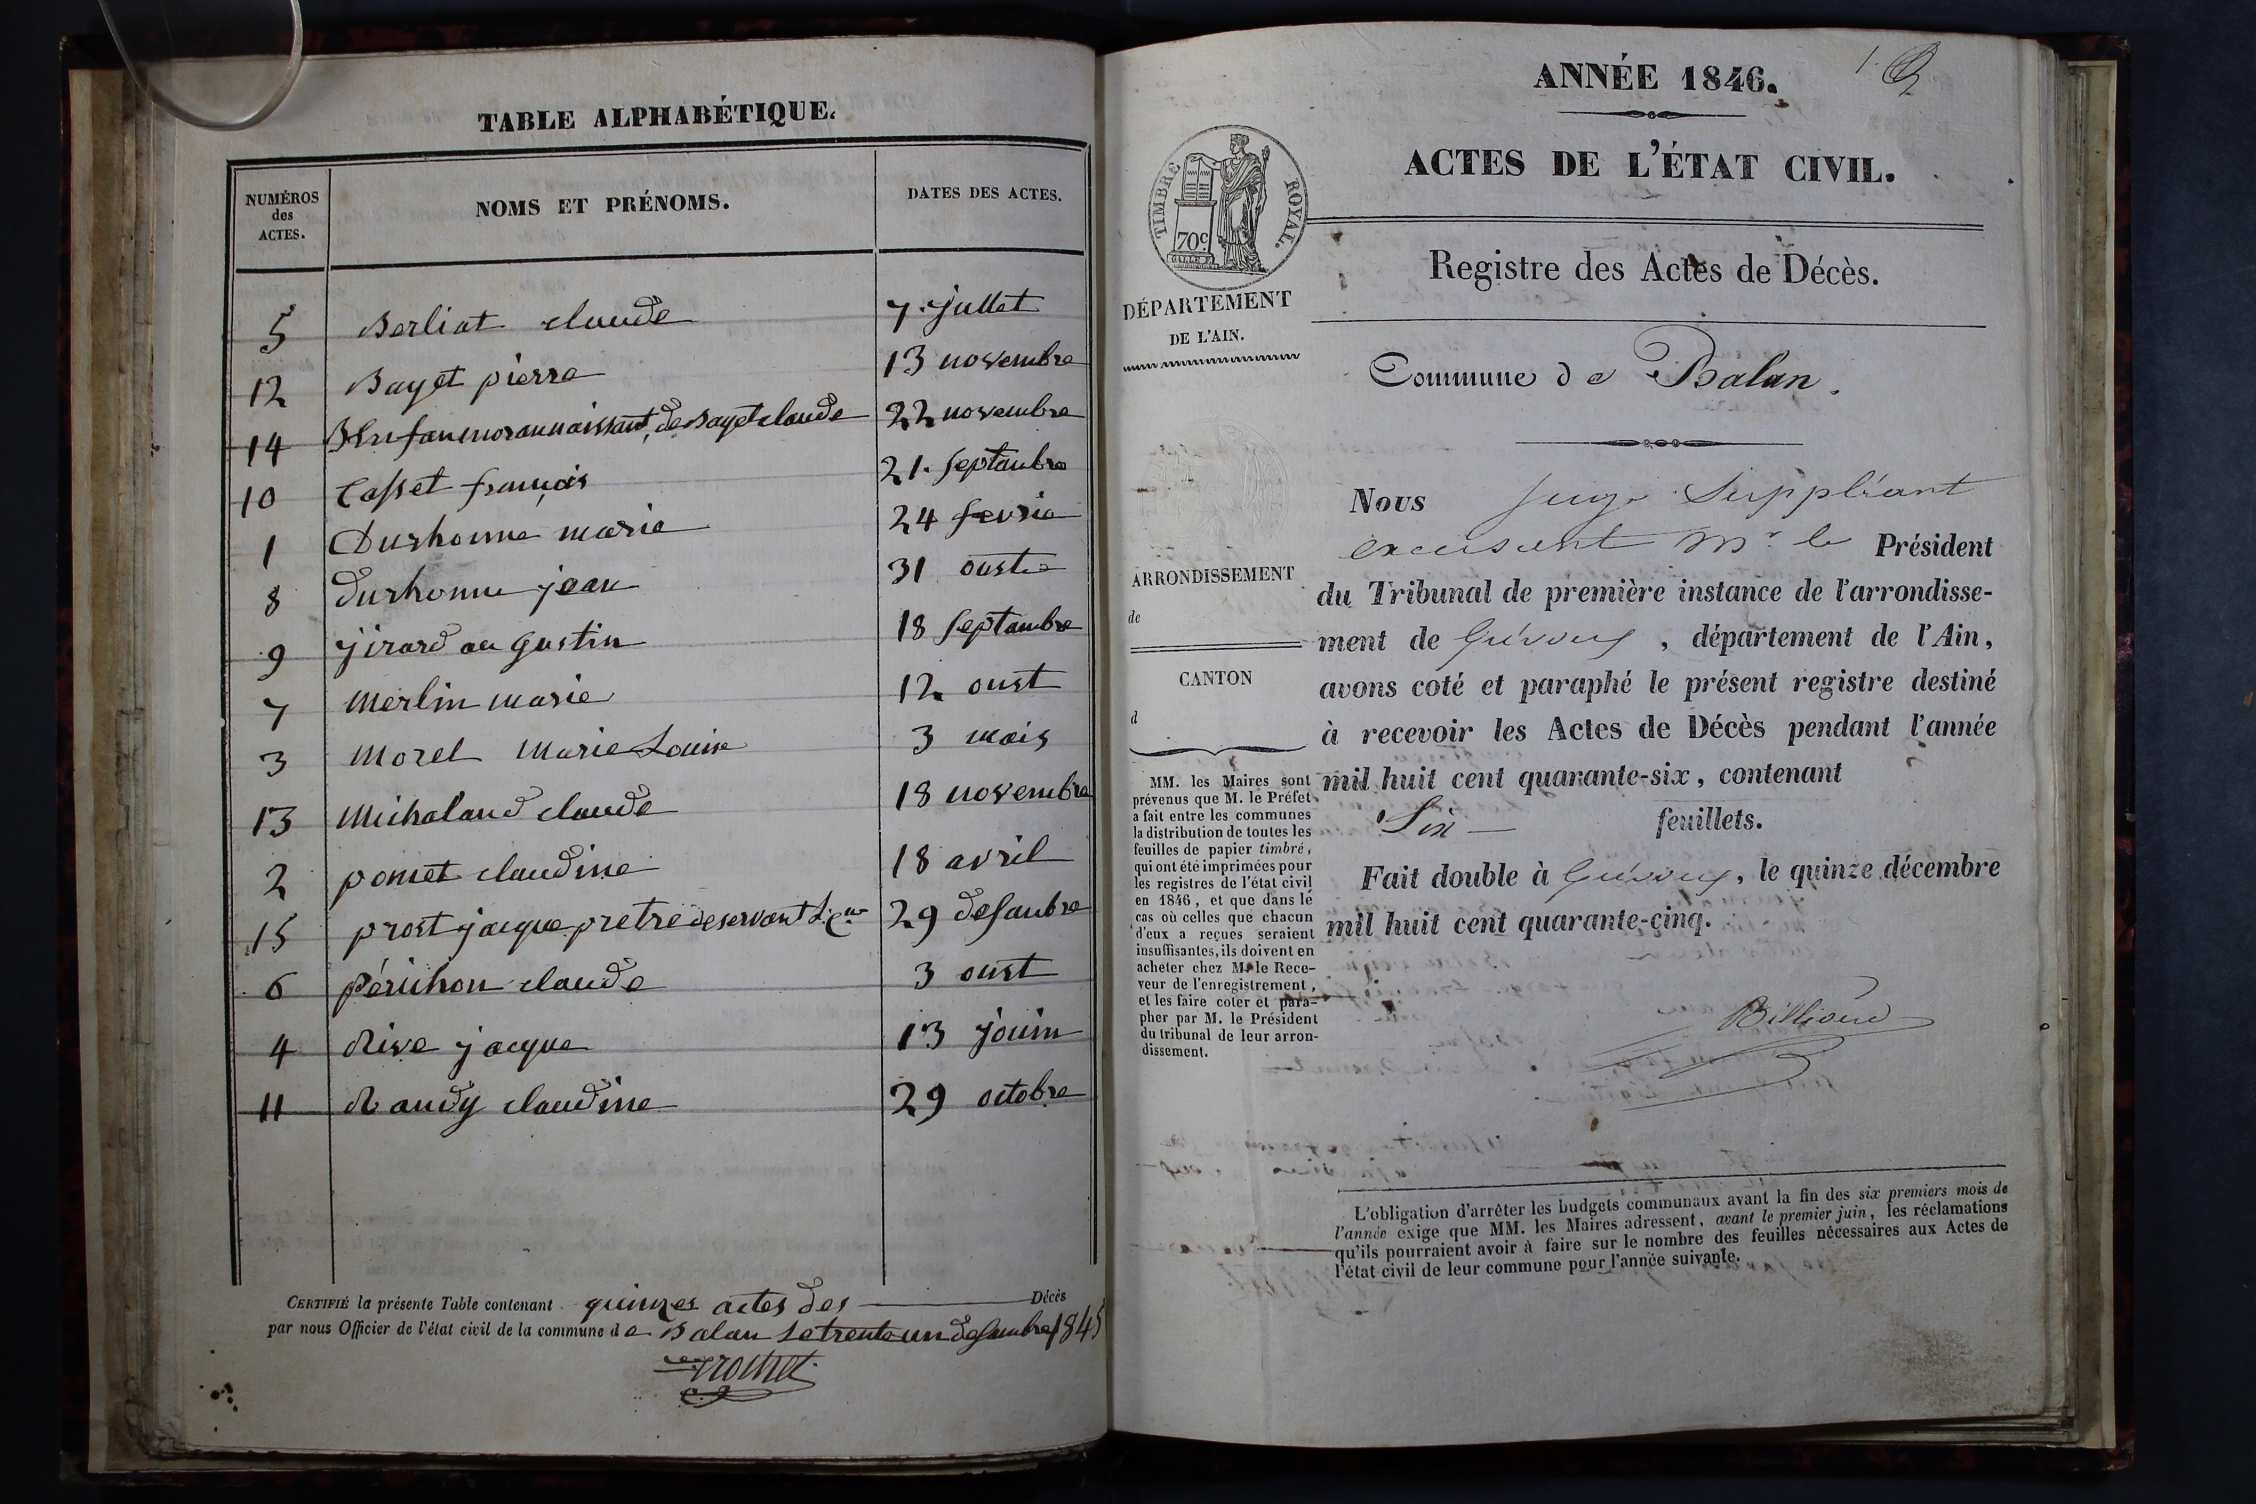 TABLE ALPHABÉTIQUE.
NUMÉROS des ACTES. NOMS ET PRÉNOMS. DATES DES ACTES.
5 Berliat claude 7 jullet
12 Bayet pierre 13 novembre
14 de Bayet claude 22 novembre
10 Casset françois 21 septanbre
1 Durhonne marie 24 fevrie
8 durhonne jean 31 oust
9 jirard au gustin 18 septambre
7 Merlin marie 12 oust
3 Morel Marie Louise 3 mais
13 Michaland claude 18 novembre
2 pomet claudine 18 avril
15 prost jacque pretre deservant 29 desanbre
6 périchon claude 3 oust
4 Rive jacque 13 jouin
11 Randy claudine 29 octobre
CERTIFIÉ la présente Table contenant quinzes actes des Décès
par nous Officier de l'état civil de la commune de Balan Le trente un desanbre 1845
ANNÉE 1846.
1.
ACTES DE L'ÉTAT CIVIL.
TIMBRE ROYAL.
70c
DÉPARTEMENT
DE L'AIN.
Registre des Actes de Décès.
Commune de Balan.
ARRONDISSEMENT
de
CANTON
d
MM. les Maires sont
prévenus que M. le Préfet
a fait entre les communes
la distribution de toutes les
feuilles de papier timbré,
qui ont été imprimées pour
les registres de l'état civil
en 1846, et que dans le
cas où celles que chacun
d'eux a reçues seraient
insuffisantes, ils doivent en
acheter chez M. le Rece-
veur de l'enregistrement,
et les faire coter et para-
pher par M. le Président
du tribunal de leur arron-
dissement.
Nous Juge Suppléant
excusant Mr le Président
du Tribunal de première instance de l'arrondisse-
ment de Trévoux, département de l'Ain,
avons coté et paraphé le présent registre destiné
à recevoir les Actes de Décès pendant l'année
mil huit cent quarante-six, contenant
Six feuillets.
Fait double à Trévoux, le quinze décembre
mil huit cent quarante-cinq.
Billioud
L'obligation d'arrêter les budgets communaux avant la fin des six premiers mois de
l'année exige que MM. les Maires adressent, avant le premier juin, les réclamations
qu'ils pourraient avoir à faire sur le nombre des feuilles nécessaires aux Actes de
l'état civil de leur commune pour l'année suivante.